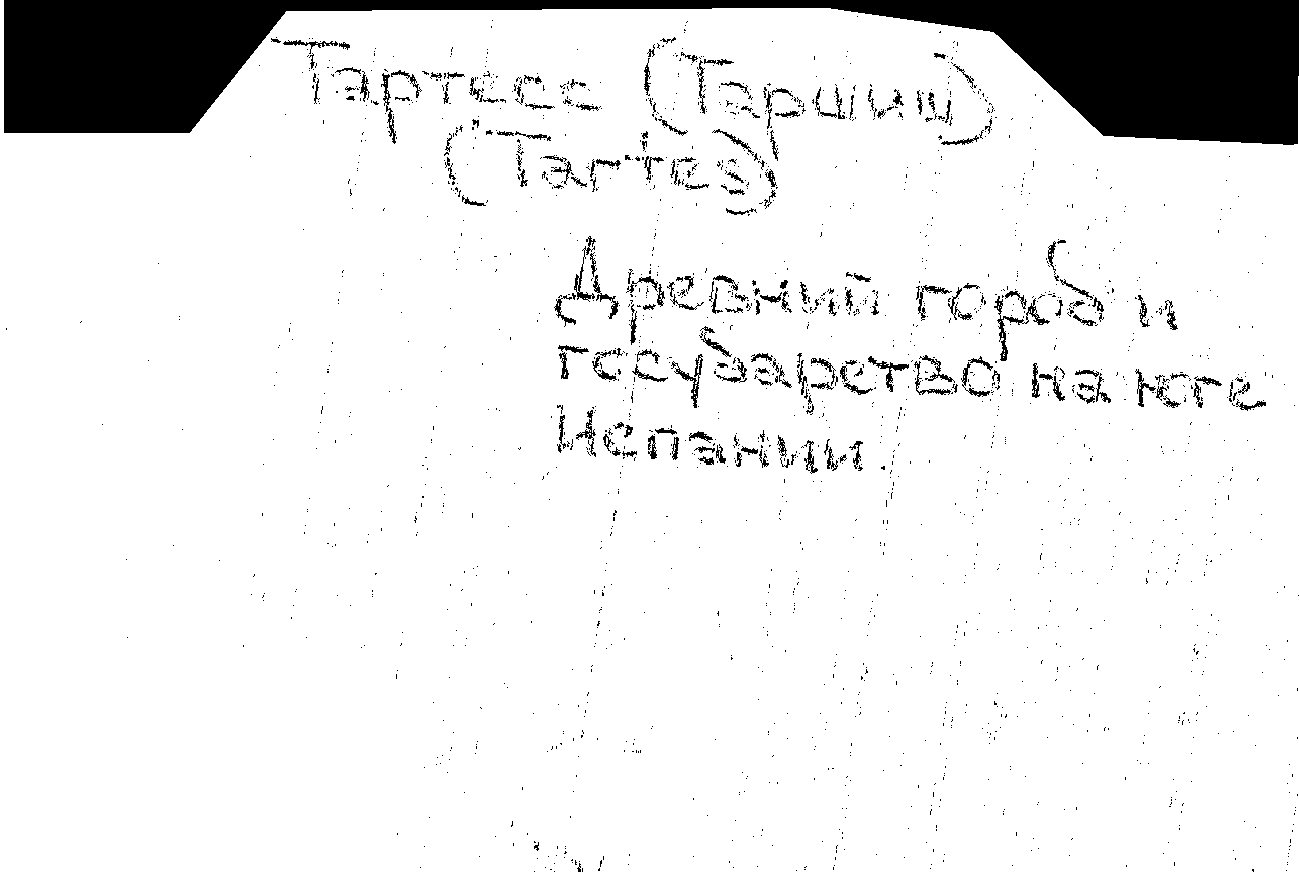 Тартесс (Таршиш)
(Tartes)
Древний город и
государство на юге
Испании.